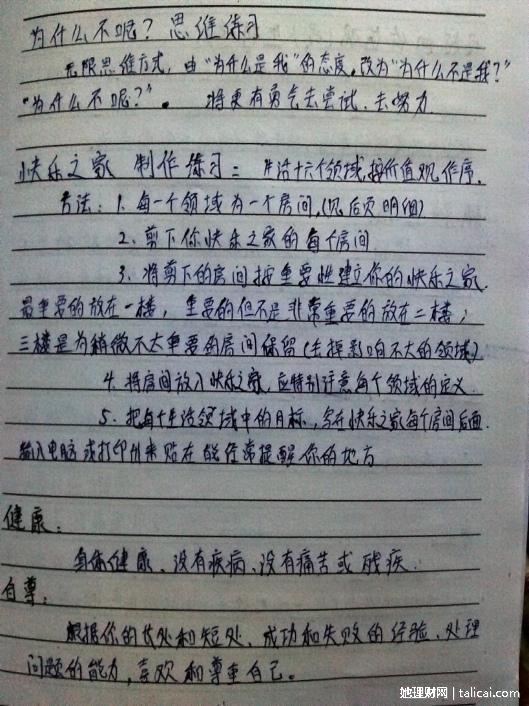 为什么不呢？思维练习
无限思维方式，由“为什么是我”的态度，改为“为什么不是我？”
“为什么不呢？”。将更有勇气去尝试、去努力
快乐之家 制作练习：生活十六个领域，按价值观作序。
方法：1. 每一个领域为一个房间，(见后页明细)
2. 剪下你快乐之家的每个房间
3. 将剪下的房间按重要性建立你的快乐之家.
最重要的放在一楼，重要的但不是非常重要的放在二楼；
三楼是为稍微不太重要的房间保留(去掉影响不大的领域)
4. 将房间放入快乐之家，应特别注意每个领域的定义
5. 把每个生活领域中的目标，写在快乐之家每个房间后面.
输入电脑或打印出来贴在能经常提醒你的地方
健康：
身体健康、没有疾病、没有痛苦或残疾.
自尊：
根据你的长处和短处、成功和失败的经验、处理
问题的能力，喜欢和尊重自己。
她理财网 | talicai.com